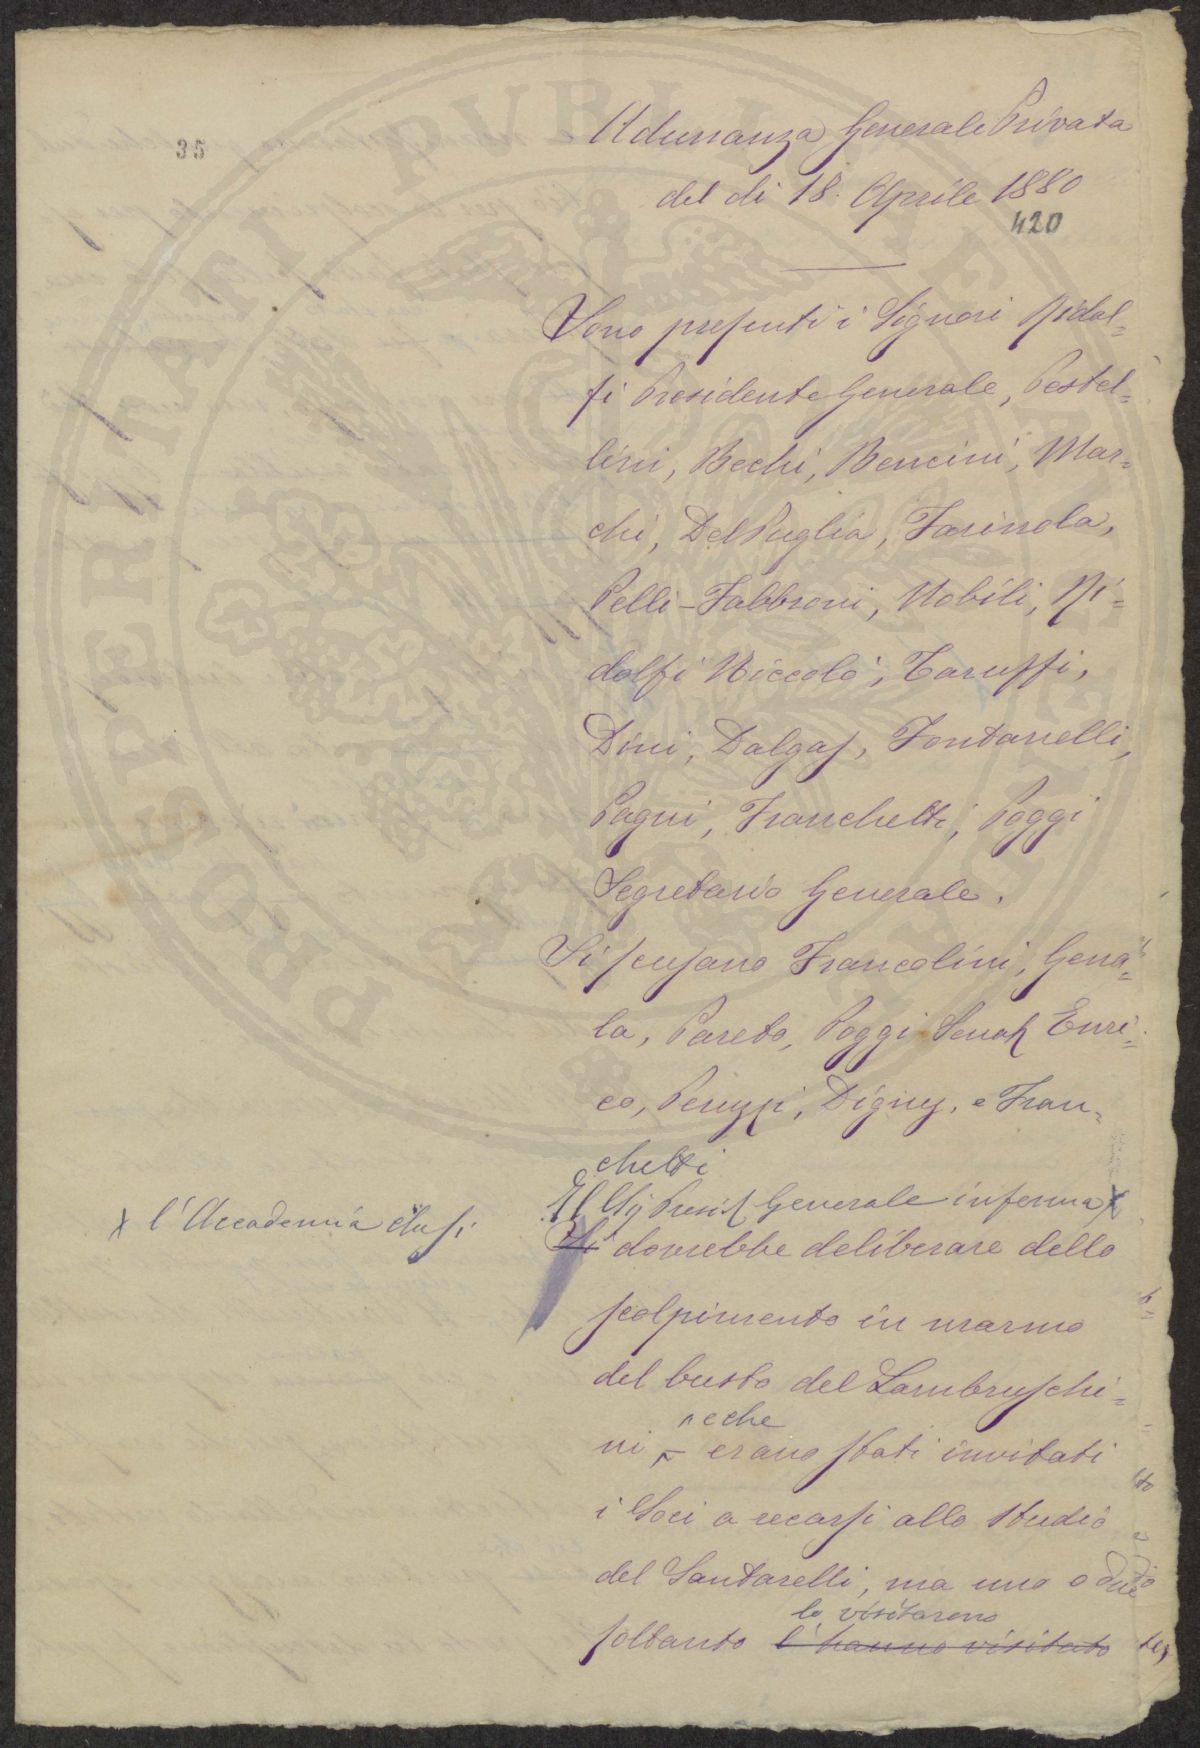 35
Adunanza Generale Privata
del dì 18. Aprile 1880
420
Sono presenti i Signori Ridol=
fi Presidente Generale, Pestel=
lini, Bechi, Bencini, Mar=
chi, Del Puglia, Farinola,
Pelli-Fabbroni, Nobili, Ri=
dolfi Niccolò, Taruffi,
Dini, Dalgas, Fontanelli,
Pagni, Franchetti, Poggi
Segretario Generale.
Si scusano Francolini, Gena=
la, Pareto, Poggi Enri=
co, Peruzzi, Digny, e Fran=
chetti
Il Generale informa X
X l'Accademia che si
Si dovrebbe deliberare dello
scolpimento in marmo
del busto del Lambruschi=
e che
ni, erano stati invitati
i Soci a recarsi allo Studio
del Santarelli, ma uno o due
lo visitarono
soltanto l'hanno visitato
PROSPERITATI PUBLICAE